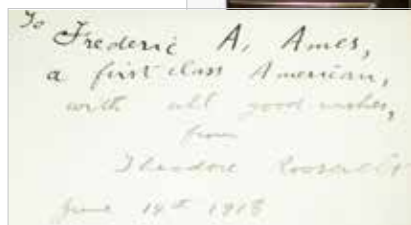 To
Frederic A. Ames,
a first class American,
with all good wishes,
from
Theodore Roosevelt
June 14th 1918